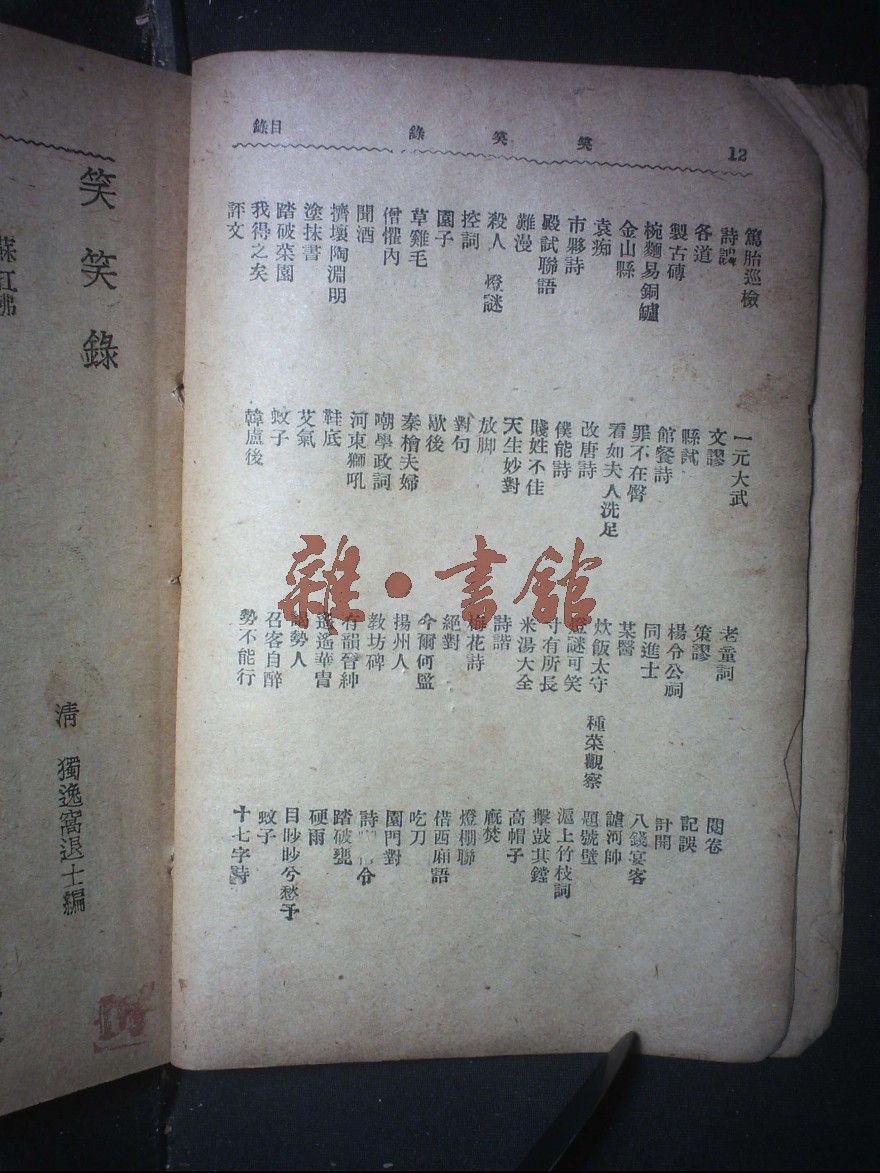 12 笑笑錄 目錄
篤胎巡檢
詩
各道
製古磚
椀麵易銅鱸
金山縣
袁痴
市夥詩
殿試聯語
難漫
殺人 燈謎
控詞
園子
草雞毛
僧懼內
聞酒
擠壞陶淵明
塗抹書
踏破菜園
我得之矣
評文
一元大武
文謬
縣試
館餐詩
罪不在臀
看如夫人洗足
改唐詩
僕能詩
賤姓不佳
天生妙對
放脚
對句
歇後
秦檜夫婦
嘲學政詞
河東獅吼
鞋底
艾氣
蚊子
韓盧後
老童詞
策謬
楊令公祠
同進士
某醫
炊飯太守 種菜觀察
燈謎可笑
寸有所長
米湯大全
詩諧
梅花詩
絕對
今爾何監
揚州人
教坊碑
有韻晉紳
遙遙華胄
勢人
召客自醉
勢不能行
閱卷
記誤
計開
八錢宴客
謔河帥
題號壁
滬上竹枝詞
擊鼓其鏜
高帽子
廐焚
燈棚聯
借西廂語
吃刀
園門對
詩 令
踏破甕
硬雨
目眇眇兮愁予
蚊子
十七字詩
笑笑錄
清 獨逸窩退士編
雜·書館